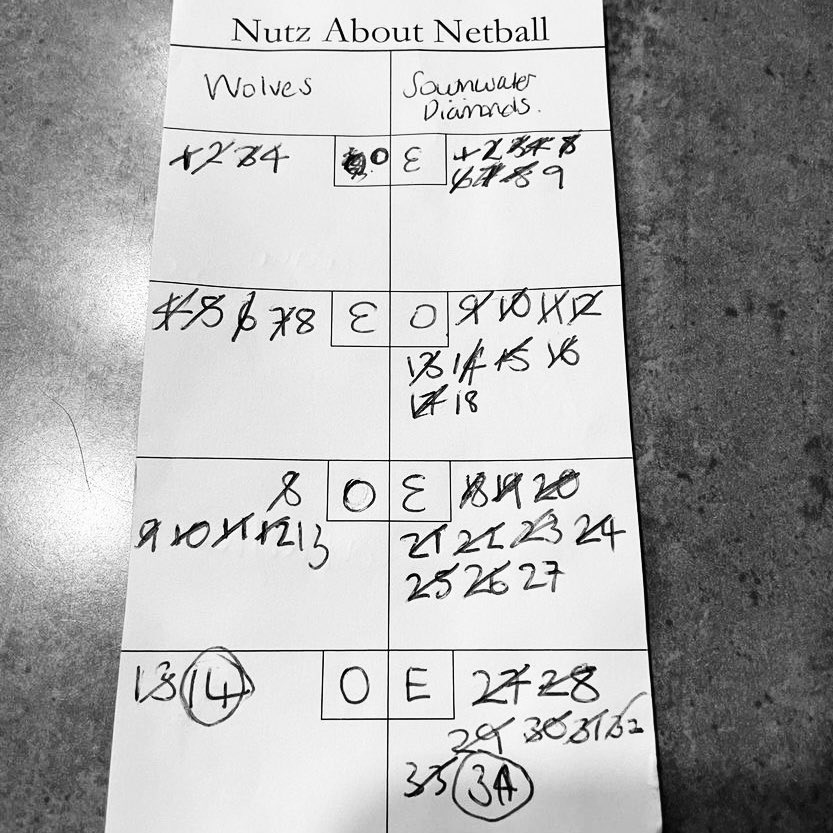 Nutz About Netball
Wolves
Diamonds.
1 2 3 4
O Ɛ
1 2 3 4 5
6 7 8 9
4 5 6 7 8
Ɛ O
9 10 11 12
13 14 15 16
17 18
8
9 10 11 12 13
O Ɛ
18 19 20
21 22 23 24
25 26 27
13 14
O E
27 28
29 30 31 32
33 34